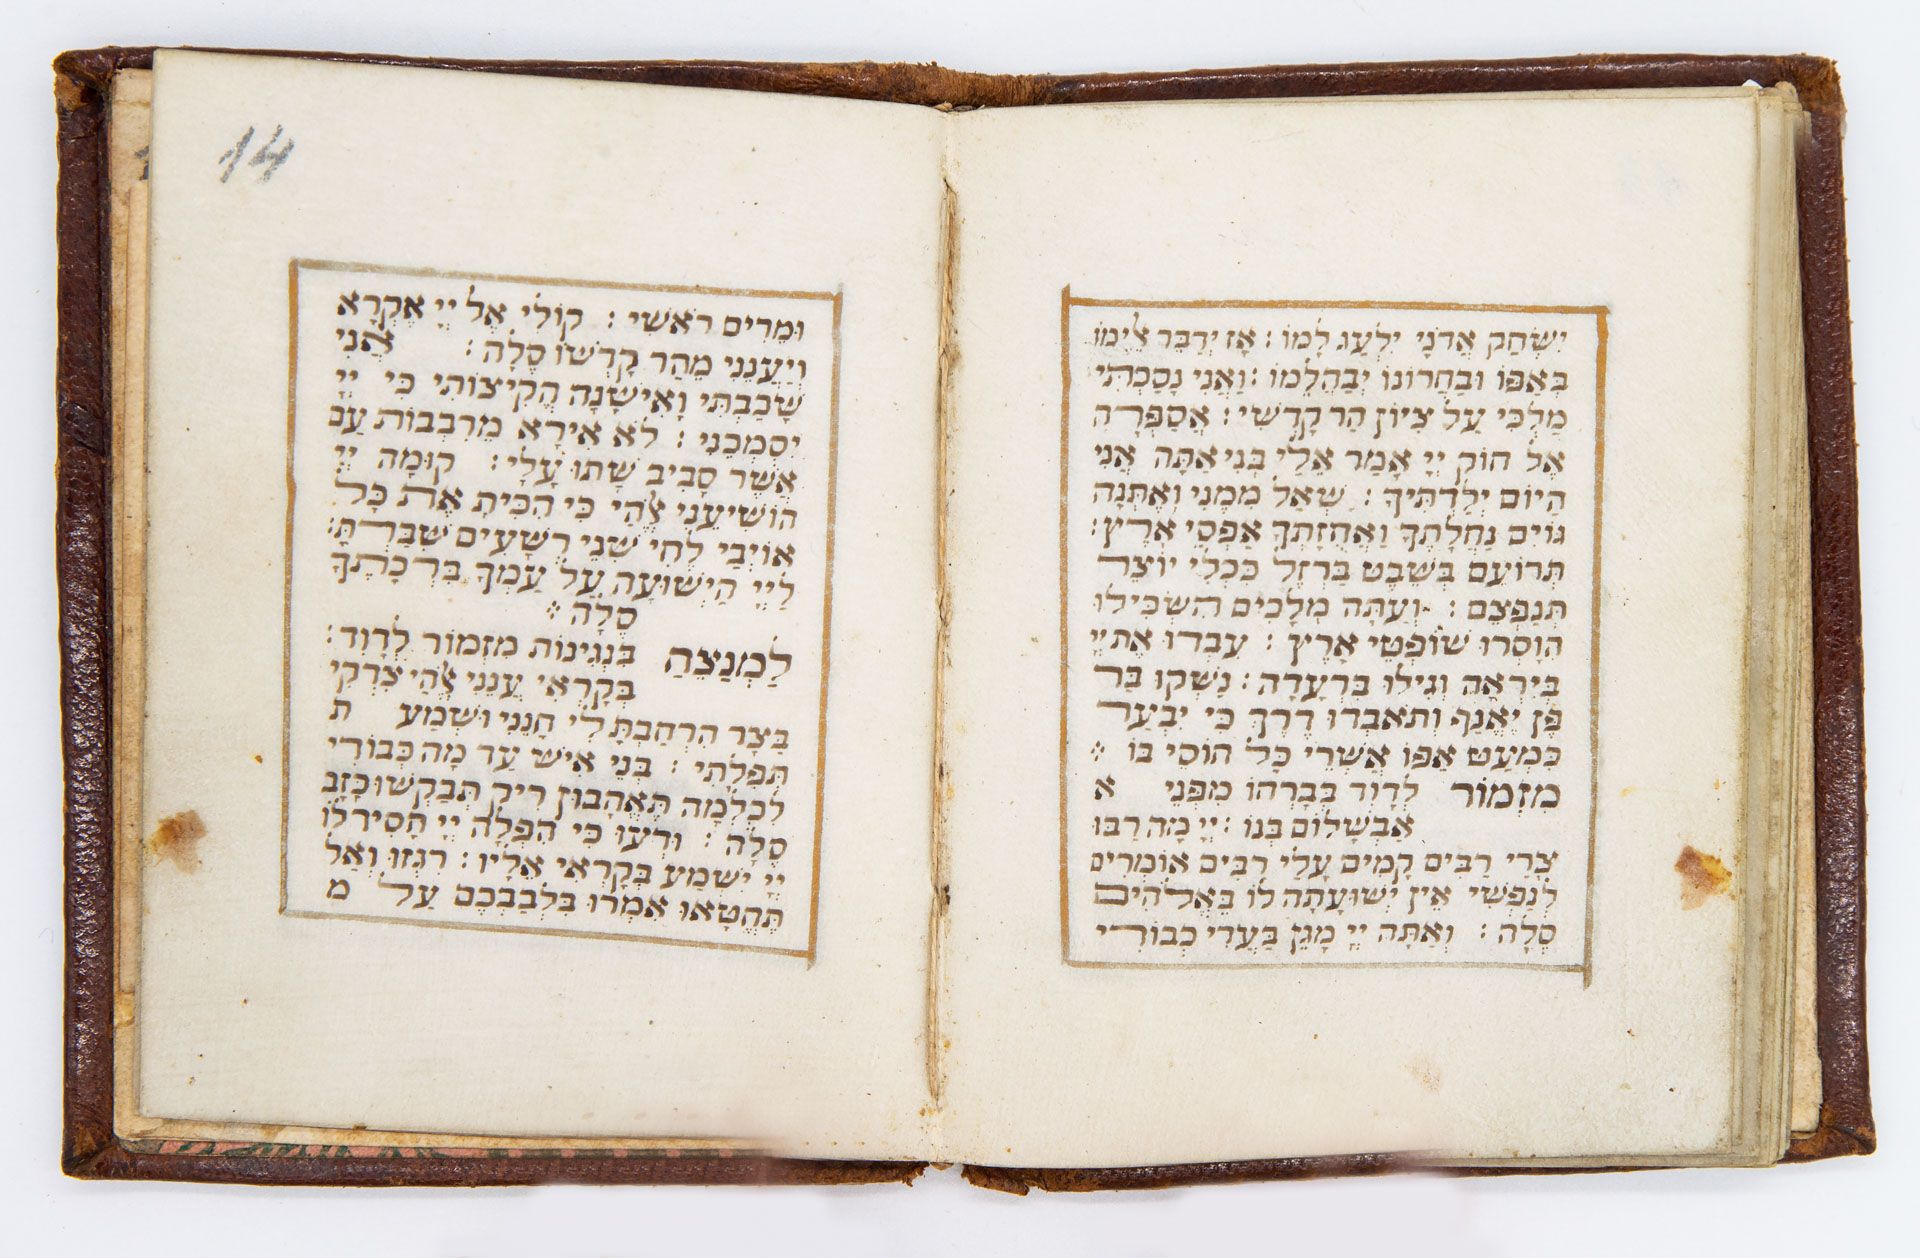 יִשְׂחַק אֲדֹנָי יִלְעַג לָמוֹ : אָז יְדַבֵּר אֵלֵימוֹ
בְּאַפּוֹ וּבַחֲרוֹנוֹ יְבַהֲלֵמוֹ : וַאֲנִי נָסַכְתִּי
מַלְכִּי עַל צִיּוֹן הַר קָדְשִׁי : אֲסַפְּרָה
אֶל חוֹק יְיָ אָמַר אֵלַי בְּנִי אַתָּה אֲנִי
הַיּוֹם יְלִדְתִּיךָ : שְׁאַל מִמֶּנִּי וְאֶתְּנָה
גוֹיִם נַחֲלָתֶךָ וַאֲחֻזָּתְךָ אַפְסֵי אָרֶץ :
תְּרוֹעֵם בְּשֵׁבֶט בַּרְזֶל כִּכְלִי יוֹצֵר
תְּנַפְּצֵם : וְעַתָּה מְלָכִים הַשְׂכִּילוּ
הִוָּסְרוּ שׁוֹפְטֵי אָרֶץ : עִבְדוּ אֶת יְיָ
בְּיִרְאָה וְגִילוּ בִּרְעָדָה : נַשְּׁקוּ בַר
פֶּן יֶאֱנַף וְתֹאבְדוּ דֶרֶךְ כִּי יִבְעַר
כִּמְעַט אַפּוֹ אַשְׁרֵי כָּל חוֹסֵי בוֹ :
מִזְמוֹר לְדָוִד בְּבָרְחוֹ מִפְּנֵי א
אַבְשָׁלוֹם בְּנוֹ : יְיָ מָה רַבּוּ
צָרָי רַבִּים קָמִים עָלָי רַבִּים אוֹמְרִים
לְנַפְשִׁי אֵין יְשׁוּעָתָה לּוֹ בֵאלֹהִים
סֶלָה : וְאַתָּה יְיָ מָגֵן בַּעֲדִי כְּבוֹדִי
14
וּמֵרִים רֹאשִׁי : קוֹלִי אֶל יְיָ אֶקְרָא
וְיַעֲנֵנִי מֵהַר קָדְשׁוֹ סֶלָה : אֲנִי
שָׁכַבְתִּי וָאִישָׁנָה הֱקִיצוֹתִי כִּי יְיָ
יִסְמְכֵנִי : לֹא אִירָא מֵרִבְבוֹת עַם
אֲשֶׁר סָבִיב שָׁתוּ עָלָי : קוּמָה יְיָ
הוֹשִׁיעֵנִי אֱלֹהַי כִּי הִכִּיתָ אֶת כָּל
אוֹיְבַי לֶחִי שִׁנֵּי רְשָׁעִים שִׁבַּרְתָּ :
לַיְיָ הַיְשׁוּעָה עַל עַמְּךָ בִרְכָתֶךָ
סֶּלָה :
לַמְנַצֵּחַ בִּנְגִינוֹת מִזְמוֹר לְדָוִד :
בְּקָרְאִי עֲנֵנִי אֱלֹהֵי צִדְקִי
בַּצָּר הִרְחַבְתָּ לִּי חָנֵּנִי וּשְׁמַע ת
תְּפִלָּתִי : בְּנֵי אִישׁ עַד מֶה כְבוֹדִי
לִכְלִמָּה תֶּאֱהָבוּן רִיק תְּבַקְשׁוּ כָזָב
סֶלָה : וּדְעוּ כִּי הִפְלָה יְיָ חָסִיד לוֹ
יְיָ יִשְׁמַע בְּקָרְאִי אֵלָיו : רִגְזוּ וְאַל
תֶּחֱטָאוּ אִמְרוּ בִלְבַבְכֶם עַל מ